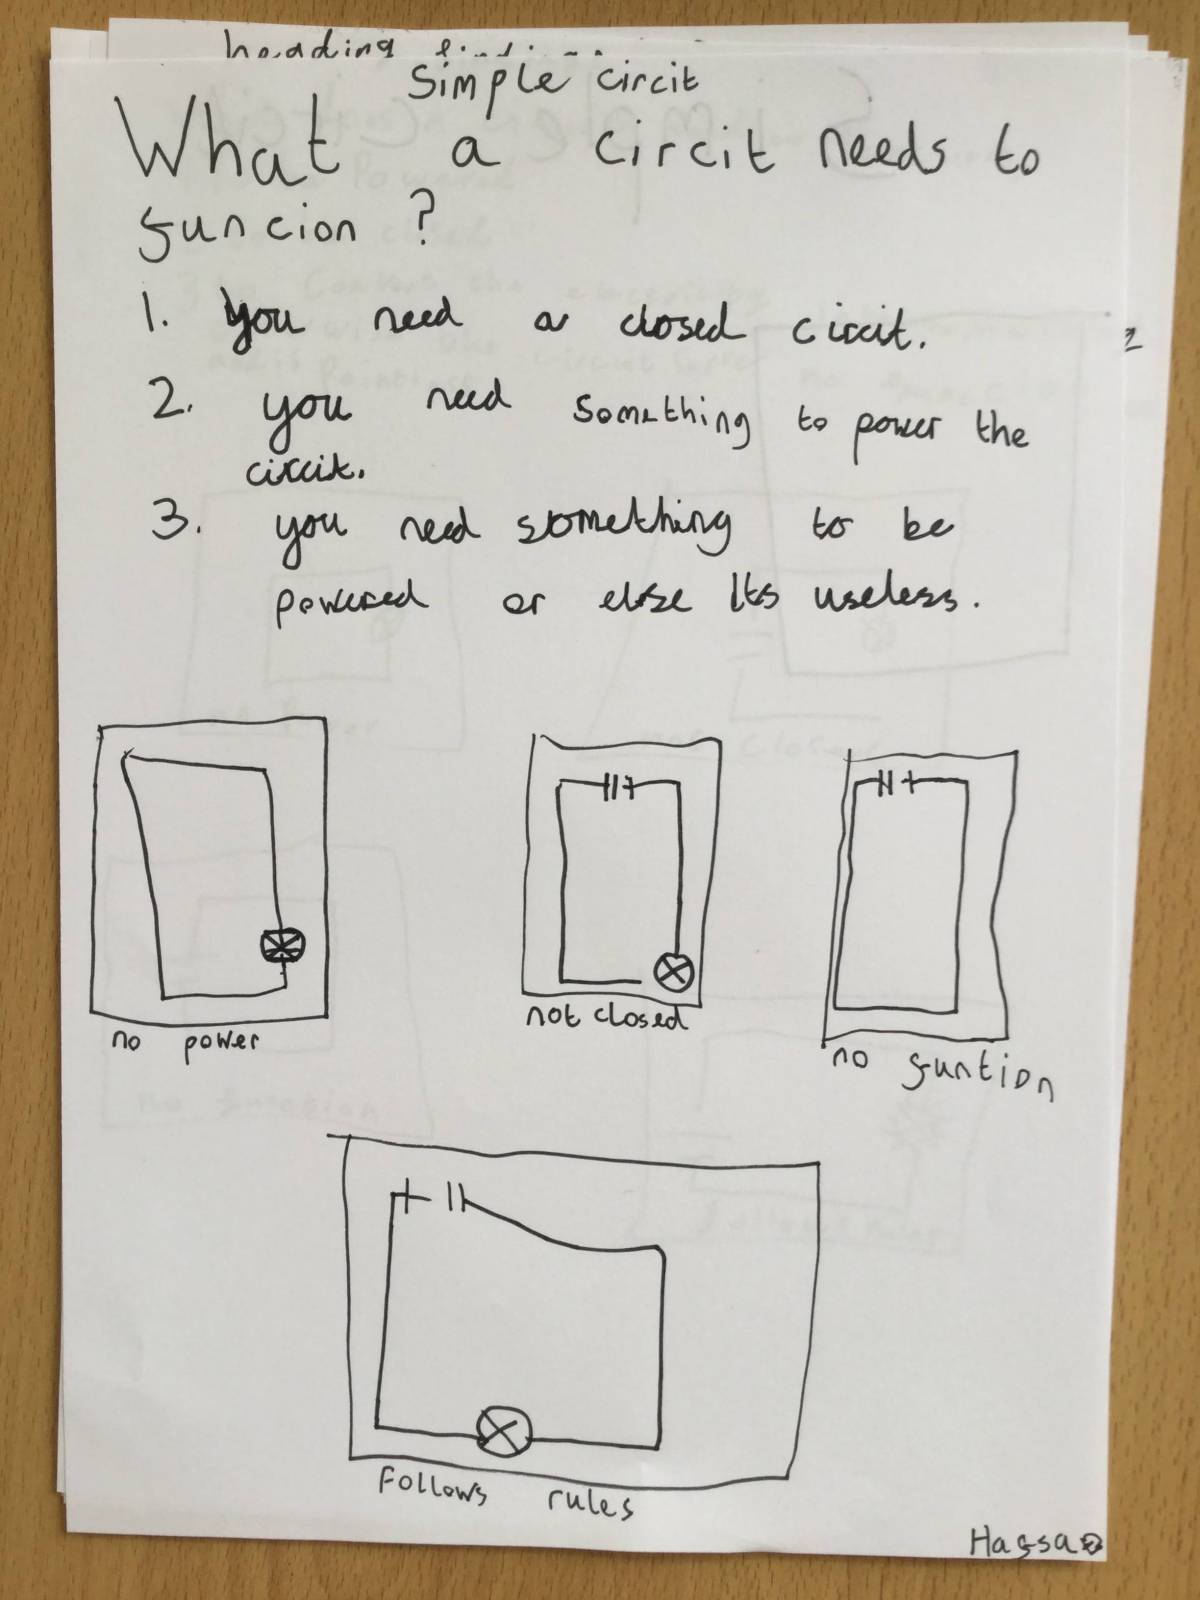 heading
Simple circit
What a circit needs to
funcion ?
1. You need a closed circit.
2. you need something to power the
circit.
3. you need something to be
powered or else Its useless.
no power
not closed
no funtion
Follows rules